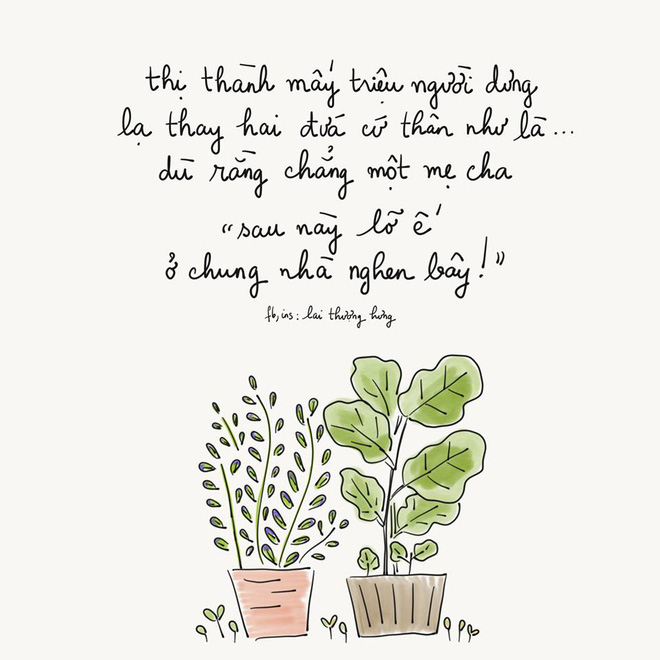 thị thành mấy triệu người dưng
lạ thay hai đứa cứ thân như là...
dù rằng chẳng một mẹ cha
“sau này lỡ ế
ở chung nhà nghen bây!”
fb, ins: lai thượng hưng